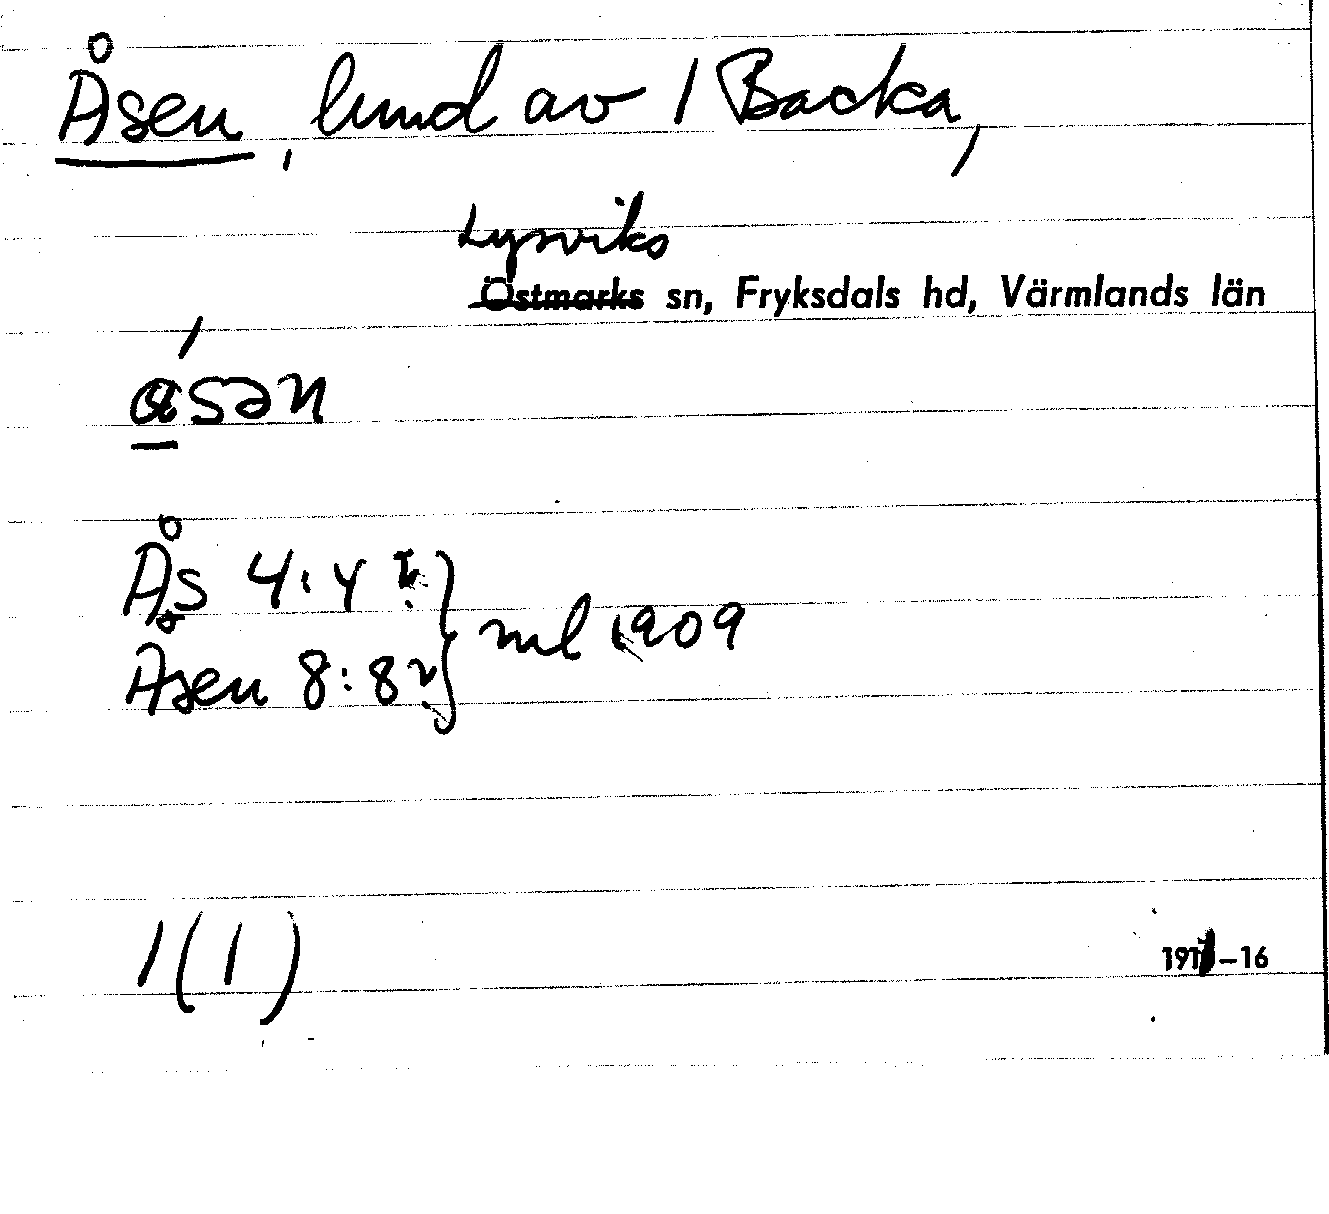 Åsen, lund av 1 Backa,
Lysviks
Östmarks sn, Fryksdals hd, Värmlands län
åsən
Ås 4:4
Åsen 8:8
ml 1909
1(1)
1911-16